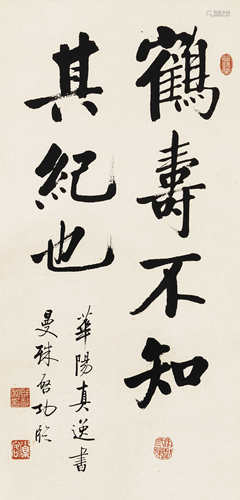 鶴壽不知
其紀也
華陽真逸書
曼殊啓功臨